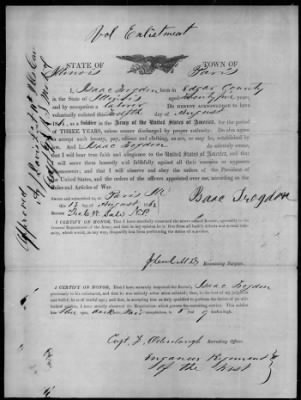 Vol Enlistment
STATE OF TOWN OF
Illinois Paris
I, Isaac Trogdon, born in Edgar County
in the State of Illinois, aged twenty five years,
and by occupation a Laborer DO HEREBY ACKNOWLEDGE to have
volunteered this day of August
as a Soldier in the Army of the United States of America, for the period
of THREE YEARS, unless sooner discharged by proper authority: Do also agree
to accept such bounty, pay, rations, and clothing, as are, or may be, established by
law. And I, Isaac Trogdon do solemnly swear,
that I will bear true faith and allegiance to the United States of America, and that
I will serve them honestly and faithfully against all their enemies or opposers
whomsoever; and that I will observe and obey the orders of the President of
the United States, and the orders of the officers appointed over me, according to the
Rules and Articles of War.
Sworn and subscribed to, at Paris Ill
this 13 day of August 1862
Before
Isaac Trogdon
I CERTIFY, ON HONOR, That I have carefully examined the above named Volunteer, agreeably to the
General Regulations of the Army, and that in my opinion he is free from all bodily defects and mental infirmity,
which would, in any way, disqualify him from performing the duties of a soldier.
Examining Surgeon.
I CERTIFY, ON HONOR, That I have minutely inspected the Volunteer, Isaac Trogdon
previously to his enlistment, and that he was entirely sober when enlisted; that, to the best of my judgment
and belief, he is of lawful age; and that, in accepting him as duly qualified to perform the duties of an able-bodied
soldier, I have strictly observed the Regulations which govern the recruiting service. This soldier
has eyes, dark hair, complexion, is feet inches high.
Capt. Recruiting Officer.
Regiment
of the West
Approved